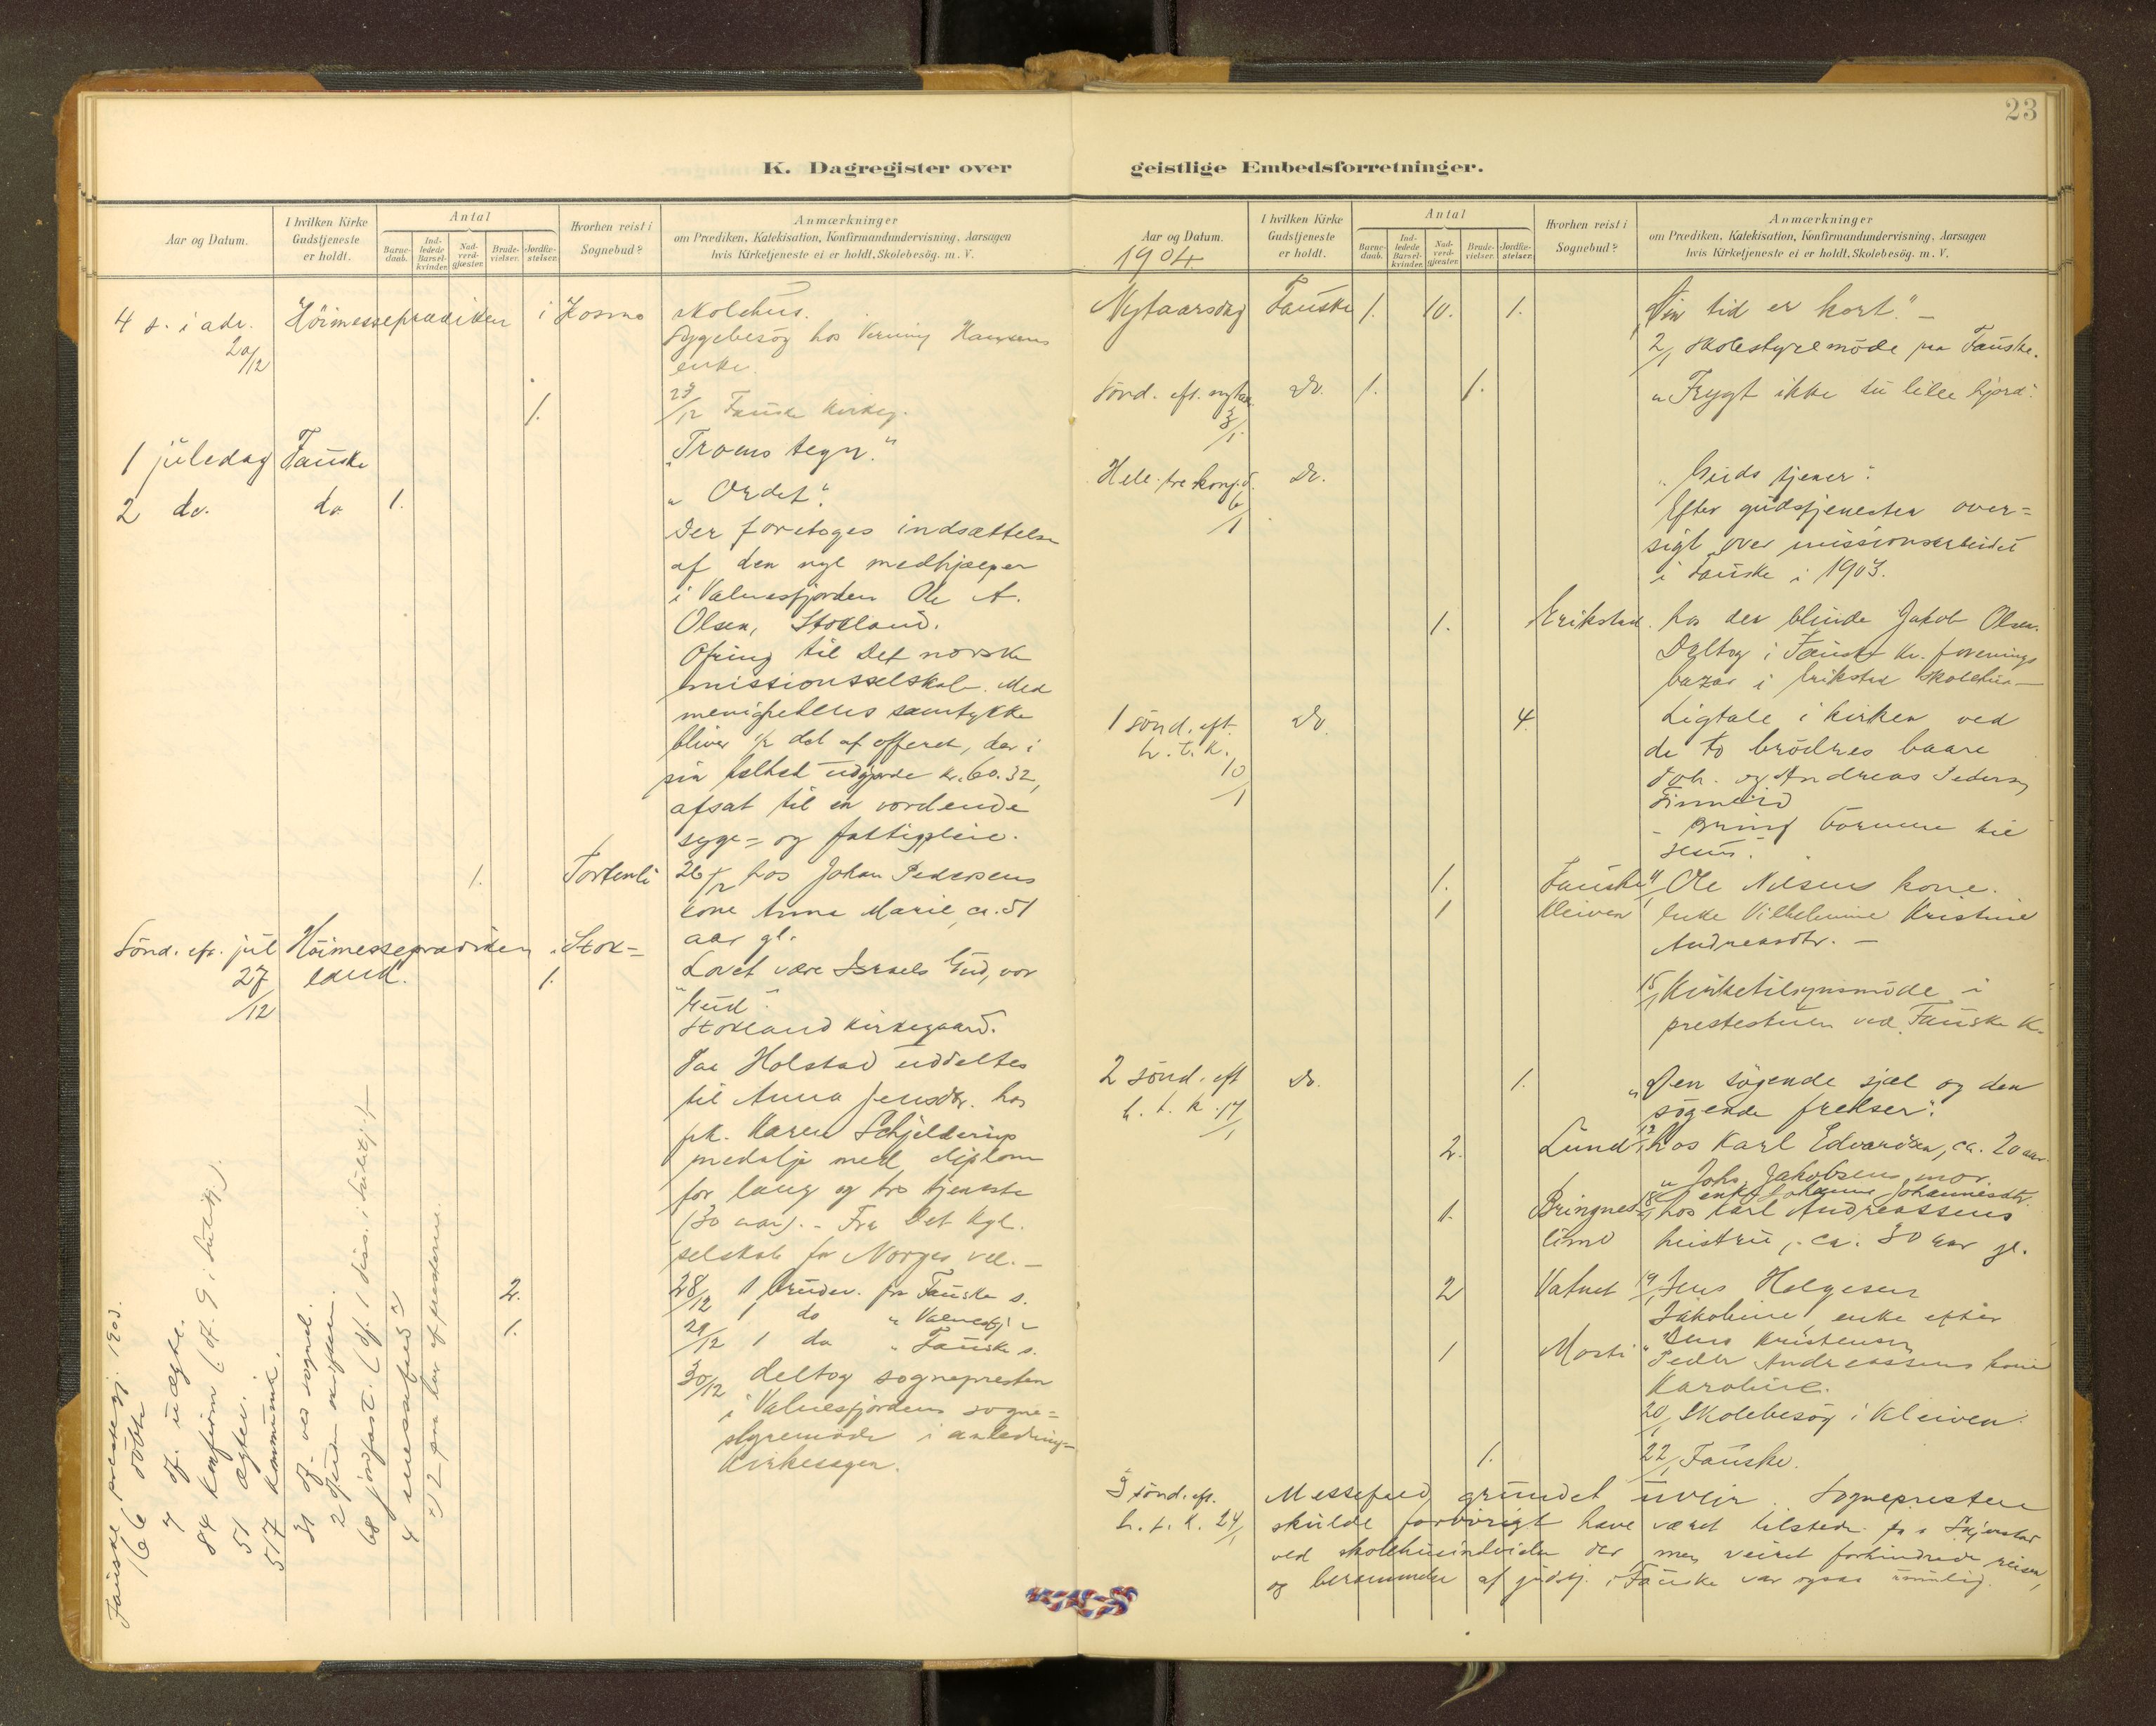 23
K. Dagregister over geistlige Embedsforretninger.
Aar og Datum.
I hvilken Kirke Gudstjeneste er holdt.
Antal
Barne-daab.
Ind-ledede Barsel-kvinder.
Nad-verd-gjæster.
Brude-vielser.
Jordfæ-stelser.
Hvorhen reist i Sognebud?
Anmærkninger
om Prædiken, Katekisation, Konfirmandundervisning, Aarsagen
hvis Kirketjeneste ei er holdt, Skolebesög. m. V.
4 s. i adv. Höimesseprædiken i Kosmo skolehus.
20/12
Sygebesög hos Hansens
enke.
1. 23/12 Fauske kirkeg.
1 juledag Fauske „Troens tegn."
2 do. do 1. „Ordet".
Der foretoges indsættelse
af den nye medhjælper
i Valnesfjorden Ole A.
Olsen, Stokland.
Ofring til Det norske
missionsselskab. Med
menighedens samtykke
bliver 1/2 del af offeret, der i
sin helhed udgjorde kr. 60.32,
afsat til en vordende
syge- og fattigpleie.
1. 26/12 hos Johan Pedersens
kone Anna Marie, ca. 51
aar gl.
Sönd. eft. jul Höimesseprædiken i Stok-
27/12 land. 1.
Lovet være Israels Gud, vor
Gud".
Stokland kirkegaard.
Paa Holstad uddeltes
til Anna Jensdtr. hos
frk. Karen Schjelderup
medalje med diplom
for lang og tro tjeneste
(30 aar). - Fra Det kgl.
selskab for Norges vel. -
2. 28/12 1 brudev. fra Fauske s.
1 do " Valnesfj "
1. 29/12 1 do " Fauske s.
30/12 deltog sognepresten
i Valnesfjordens sogne-
styremöde i anledning
kirkesagen.
Fauske prestegj. 1903.
166 döbte
7 af. uægte.
84 konfirm (af. 9 i Sulitj.)
51 ægtev.
517 kommuni.
31 af. ved sognebd.
68 jordfæst. (af. 1 diss. i Sulitj.)
4 messefald
Aar og Datum.
1904
I hvilken Kirke Gudstjeneste er holdt.
Antal
Barne-daab.
Ind-ledede Barsel-kvinder.
Nad-verd-gjæster.
Brude-vielser.
Jordfæ-stelser.
Hvorhen reist i Sognebud?
Anmærkninger
om Prædiken, Katekisation, Konfirmandundervisning, Aarsagen
hvis Kirketjeneste ei er holdt, Skolebesög. m. V.
Nytaarsdag Fauske 1. 10. 1. „Min tid er kort." -
2/1 skolestyremöde paa Fauske.
Sönd. eft. nytaar 3/1 do. 1. 1. „Frygt ikke du lille hjord".
Hell. tre kong. d. 6/1 do. „Guds tjener".
Efter gudstjenesten over-
sigt over missionsarbeidet
i Fauske i 1903.
1. Erikstad. hos den blinde Jakob Olsen.
Deltog i Fauske kv. forenings
bazar i Erikstad skolehus -
1 sönd. eft. h. t. k. 10/1 do. 4. Ligtale i kirken ved
de to brödres baare
Joh. og Andreas Pedersen
Finneid
- Bring börnene til
Jesus".
1. Fauske 11/1 Ole Nilsens kone.
1 Kleiven Enke Vilhelmine Kristine
Andreasdtr. -
15/1 Kirketilsynsmöde i
prestestuen ved Fauske k.
2 sönd. eft h. t. k. 17/1 do. 1. „Den sögende sjæl og den
sögende frelser".
2. Lund hos Karl Edvardsen, ca. 20 aar
„ Johs. Jakobsens mor
enke Johanne Johannesdtr.
1. Bringneslimo 18/1 hos Karl Andreassens
hustru, ca. 30 aar gl.
2 Vatnet 19/1 Jens Helgesen
Jakobine, enke efter
Jens Kristensen
1 Mosti " Peder Andreassens kone
Karoline.
20/1 Skolebesög i Kleiven.
1. 22/1 Fauske.
3 sönd. eft. h. t. k. 24/1 Messefald grundet uveir. Sognepresten
skulde forövrigt have været tilstede paa Skjerstad
ved skolehusindvielse der, men veiret forhindrede reisen,
og berammelse af gudstj. i Fauske var ogsaa umulig.